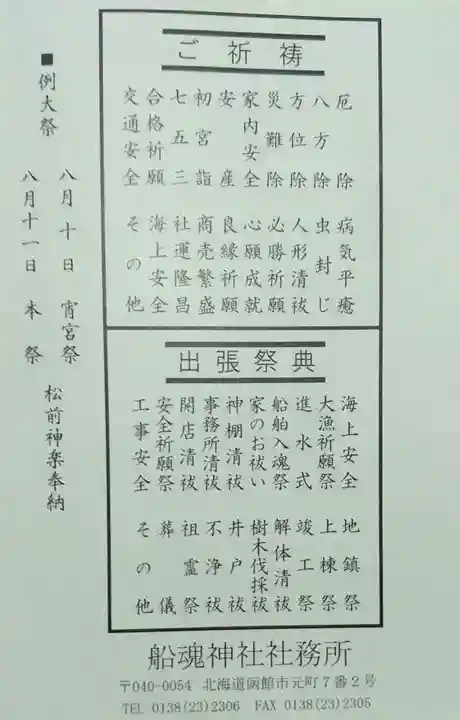 ご祈祷
厄除　病気平癒
八方除　虫封じ
方位除　人形清祓
災難除　必勝祈願
家内安全　心願成就
安産　良縁祈願
初宮詣　商売繁盛
七五三　社運隆昌
合格祈願　海上安全
交通安全　その他
出張祭典
海上安全　地鎮祭
大漁祈願祭　上棟祭
進水式　竣工祭
船舶入魂祭　解体清祓
家のお祓い　樹木伐採祓
神棚清祓　井戸祓
事務所清祓　不浄祓
開店清祓　祖霊祭
安全祈願祭　葬儀
工事安全　その他
■例大祭
八月十日　宵宮祭
八月十一日　本祭　松前神楽奉納
船魂神社社務所
〒040-0054　北海道函館市元町７番２号
TEL 0138(23)2306　FAX 0138(23)2305